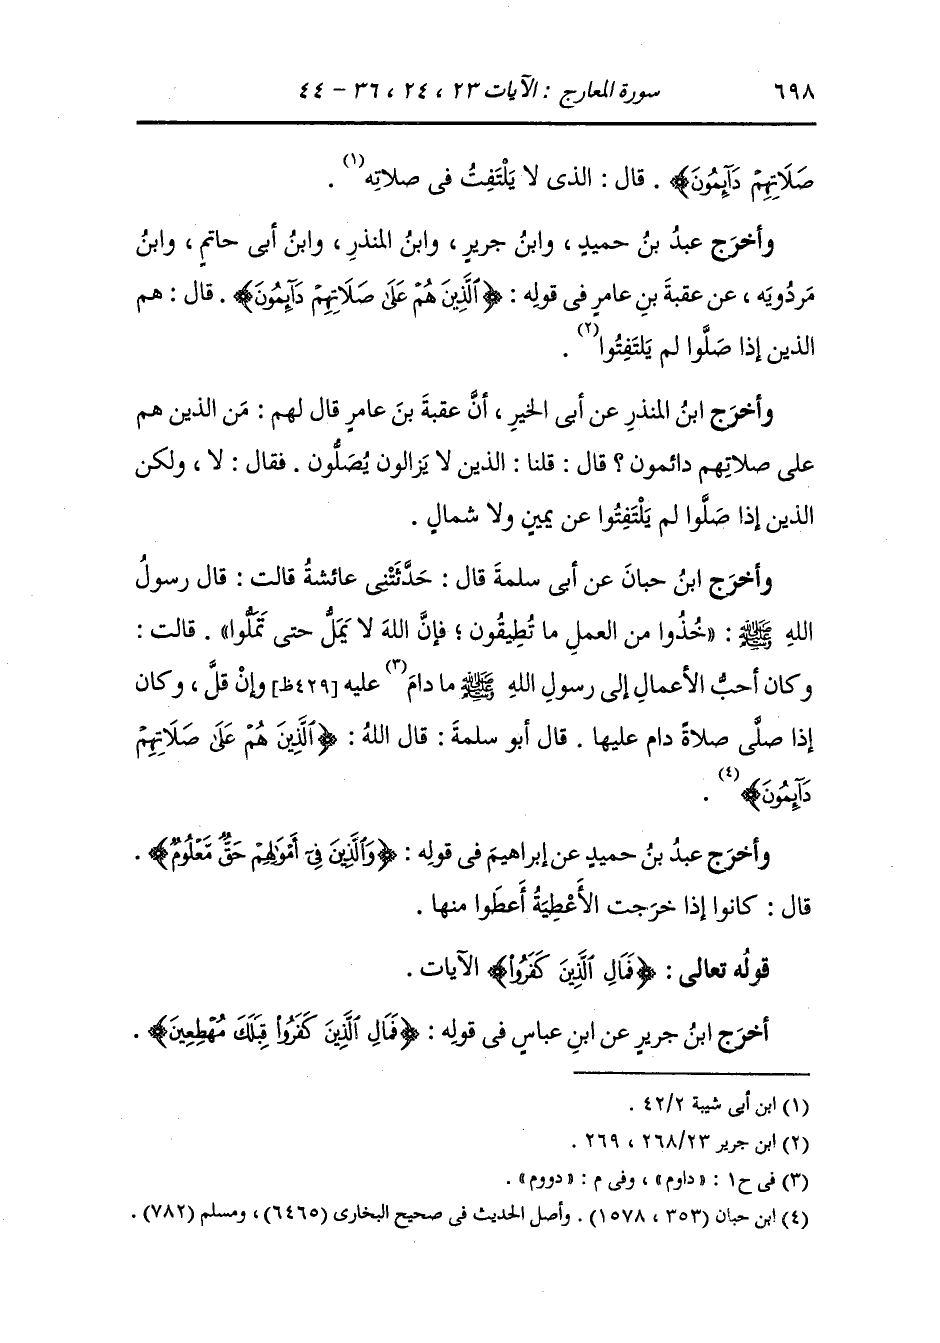 ٦٩٨ سورة المعارج : الآيات ٢٣ ، ٢٤ ، ٣٦ - ٤٤
صَلَاتِهِمْ دَآئِمُونَ﴾ . قال : الذى لا يَلْتَفِتُ فى صلاتِه(١) .
وأخرَج عبدُ بنُ حميدٍ ، وابنُ جريرٍ ، وابنُ المنذرِ ، وابنُ أبى حاتمٍ ، وابنُ
مَردُويَه ، عن عقبةَ بنِ عامرٍ فى قولِه : ﴿ٱلَّذِينَ هُمْ عَلَىٰ صَلَاتِهِمْ دَآئِمُونَ﴾ . قال : هم
الذين إذا صَلَّوا لم يَلتَفِتُوا(٢) .
وأخرَج ابنُ المنذرِ عن أبى الخيرِ ، أنَّ عقبةَ بنَ عامرٍ قال لهم : مَن الذين هم
على صلاتِهم دائمون ؟ قال : قلنا : الذين لا يَزالون يُصَلُّون . فقال : لا ، ولكن
الذين إذا صَلَّوا لم يَلْتَفِتُوا عن يمينٍ ولا شمالٍ .
وأخرَج ابنُ حبانَ عن أبى سلمةَ قال : حَدَّثَتْنِى عائشةُ قالت : قال رسولُ
اللهِ ﷺ : «خُذُوا من العملِ ما تُطِيقُون ؛ فإنَّ اللهَ لا يَمَلُّ حتى تَمَلُّوا» . قالت :
وكان أحبُّ الأعمالِ إلى رسولِ اللهِ ﷺ ما دامَ(٣) عليه [٤٢٩ظ] وإنْ قلَّ ، وكان
إذا صلَّى صلاةً دام عليها . قال أبو سلمةَ : قال اللهُ : ﴿ٱلَّذِينَ هُمْ عَلَىٰ صَلَاتِهِمْ
دَآئِمُونَ﴾(٤) .
وأخرَج عبدُ بنُ حميدٍ عن إبراهيمَ فى قولِه : ﴿وَٱلَّذِينَ فِىٓ أَمْوَٰلِهِمْ حَقٌّ مَّعْلُومٌ﴾ .
قال : كانوا إذا خرَجت الأَعْطِيَةُ أَعطَوا منها .
قولُه تعالى : ﴿فَمَالِ ٱلَّذِينَ كَفَرُوا۟﴾ الآيات .
أخرَج ابنُ جريرٍ عن ابنِ عباسٍ فى قولِه : ﴿فَمَالِ ٱلَّذِينَ كَفَرُوا۟ قِبَلَكَ مُهْطِعِينَ﴾ .
(١) ابن أبى شيبة ٤٢/٢ .
(٢) ابن جرير ٢٦٨/٢٣ ، ٢٦٩ .
(٣) فى ح١ : «داوم» ، وفى م : «دووم» .
(٤) ابن حبان (٣٥٣ ، ١٥٧٨) . وأصل الحديث فى صحيح البخارى (٦٤٦٥) ، ومسلم (٧٨٢) .